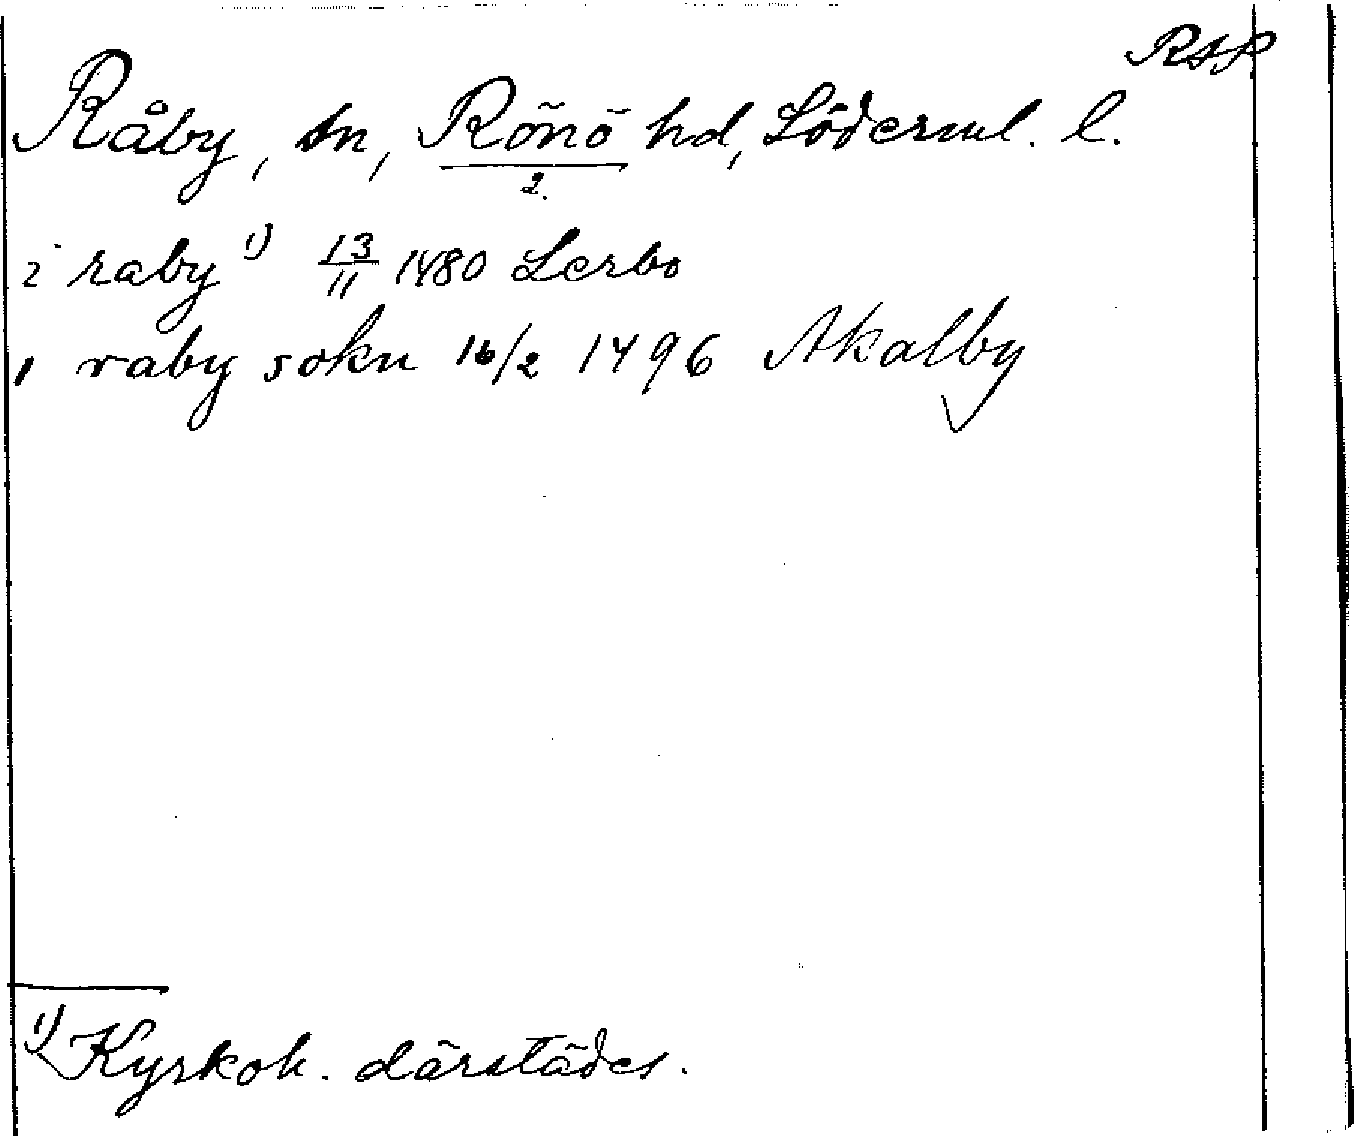 RAP
Råby, sn, Rönö hd, Söderml. l.
2.
i raby 1) 13/11 1480 Lerbo
i raby sokn 16/2 1496 Akalby
1) Kyrkoh. därstädes.